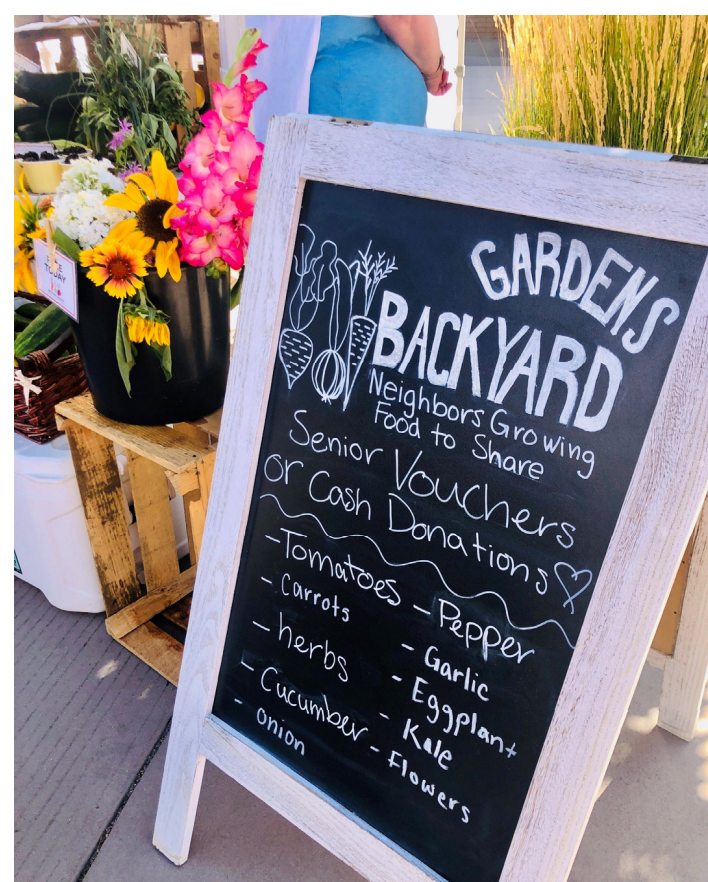 GARDENS
BACKYARD
Neighbors Growing
Food to Share
Senior Vouchers
or Cash Donations
- Tomatoes
- Carrots
- herbs
- Cucumber
- onion
- Pepper
- Garlic
- Eggplant
- Kale
- Flowers
TODAY